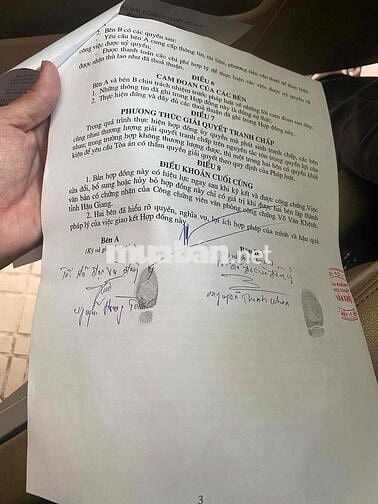 2. Bên B có các quyền sau:
- Yêu cầu bên A cung cấp thông tin, tài liệu, phương tiện cần thiết để thực hiện
công việc được uỷ quyền;
- Được thanh toán các chi phí hợp lý để thực hiện các việc được uỷ quyền và
được nhận thù lao như đã thoả thuận.
ĐIỀU 6
CAM ĐOAN CỦA CÁC BÊN
Bên A và bên B chịu trách nhiệm trước pháp luật về những lời cam đoan sau đây:
1. Những thông tin đã ghi trong Hợp đồng này là đúng sự thật.
2. Thực hiện đúng và đầy đủ các thoả thuận đã ghi trong Hợp đồng này.
ĐIỀU 7
PHƯƠNG THỨC GIẢI QUYẾT TRANH CHẤP
Trong quá trình thực hiện hợp đồng ủy quyền mà phát sinh tranh chấp, các bên
cùng nhau thương lượng giải quyết tranh chấp trên nguyên tắc tôn trọng quyền lợi của
nhau; trong trường hợp không thương lượng được, thì một trong hai bên có quyền khởi
kiện để yêu cầu Tòa án có thẩm quyền giải quyết theo quy định của Pháp luật.
ĐIỀU 8
ĐIỀU KHOẢN CUỐI CÙNG
1. Bản hợp đồng này có hiệu lực ngay sau khi ký kết và được công chứng. Việc
sửa đổi, bổ sung hoặc hủy bỏ hợp đồng này chỉ có giá trị khi được hai bên lập thành
văn bản có chứng nhận của Công chứng viên văn phòng công chứng Võ Văn Khệnh,
tỉnh Hậu Giang.
2. Hai bên đã hiểu rõ quyền, nghĩa vụ, lợi ích hợp pháp của mình và hậu quả
pháp lý của việc giao kết Hợp đồng này.
Bên A
Bên
muaban.net
3